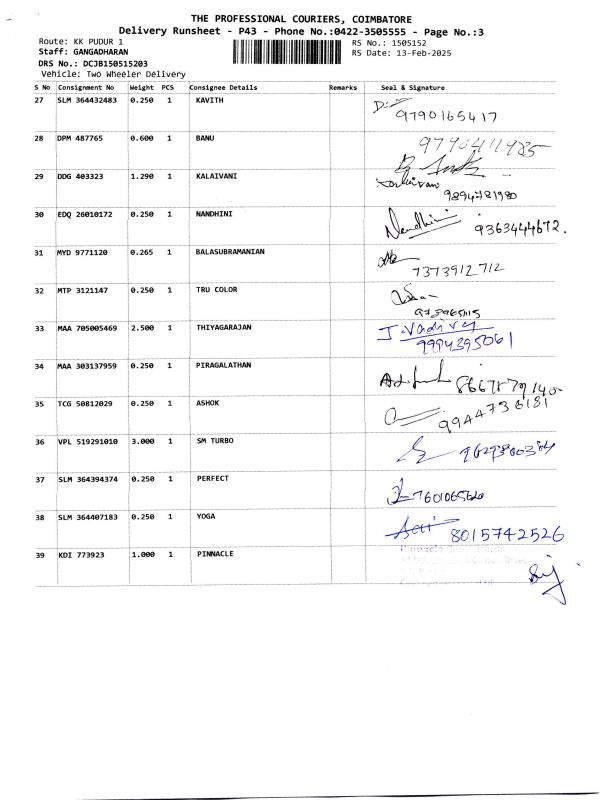 THE PROFESSIONAL COURIERS, COIMBATORE
Delivery Runsheet - P43 - Phone No.:0422-3505555 - Page No.:3
Route: KK PUDUR 1 RS No.: 1505152
Staff: GANGADHARAN RS Date: 13-Feb-2025
DRS No.: DCJB150515203
Vehicle: Two Wheeler Delivery
S No Consignment No Weight PCS Consignee Details Remarks Seal & Signature
27 SLM 364432483 0.250 1 KAVITH
9790165417
28 DPM 487765 0.600 1 BANU
9790411985
29 DDG 403323 1.290 1 KALAIVANI Kalaivani
9894781980
30 EDQ 26010172 0.250 1 NANDHINI Nandhini 9363444672.
31 MYD 9771120 0.265 1 BALASUBRAMANIAN
7373912712
32 MTP 3121147 0.250 1 TRU COLOR
33 MAA 705005469 2.500 1 THIYAGARAJAN J. Vadivel
9994395061
34 MAA 303137959 0.250 1 PIRAGALATHAN
35 TCG 50812029 0.250 1 ASHOK 9944736181
36 VPL 519291010 3.000 1 SM TURBO
37 SLM 364394374 0.250 1 PERFECT
38 SLM 364407183 0.250 1 YOGA Sai 8015742526
39 KDI 773923 1.000 1 PINNACLE Pinnacle